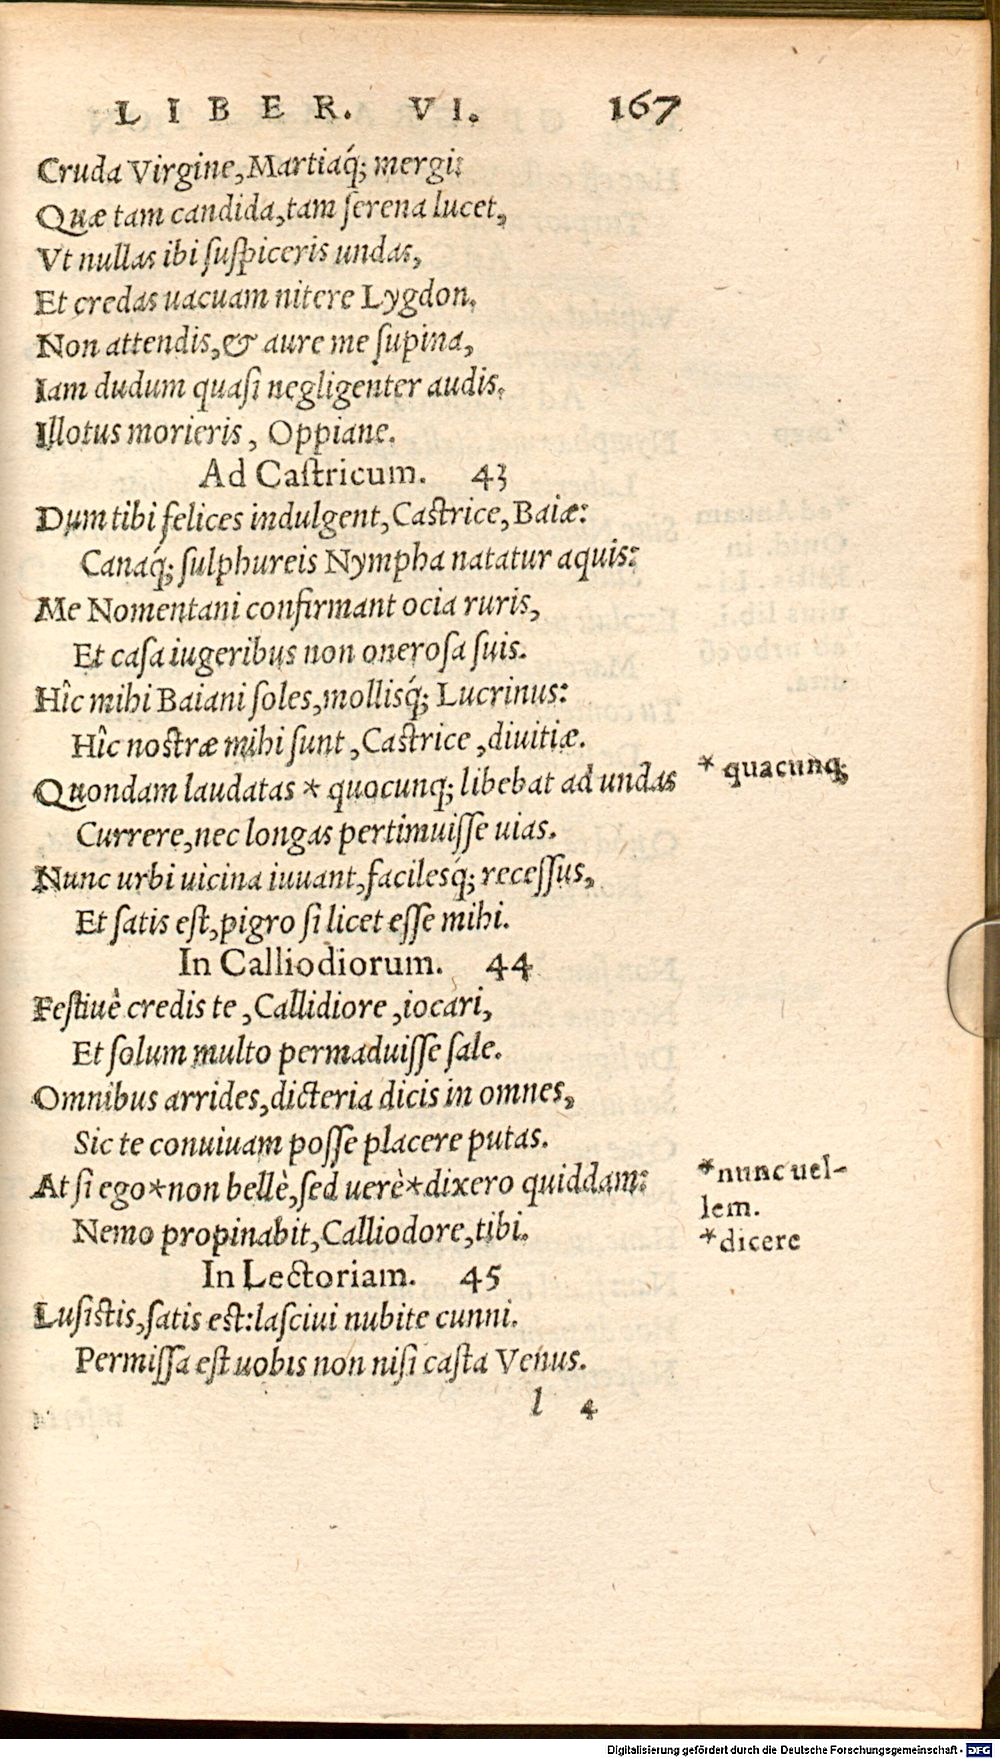 LIBER. VI. 167
Cruda Virgine, Martiaq́; mergi:
Quæ tam candida, tam ſerena lucet,
Vt nullas ibi ſuſpiceris undas,
Et credas uacuam nitere Lygdon.
Non attendis, & aure me ſupina,
Iam dudum quaſi negligenter audis.
Illotus morieris, Oppiane.
Ad Caſtricum. 43
Dum tibi felices indulgent, Caſtrice, Baiæ:
Canaq́; ſulphureis Nympha natatur aquis:
Me Nomentani confirmant ocia ruris,
Et caſa iugeribus non oneroſa ſuis.
Hîc mihi Baiani ſoles, mollisq́; Lucrinus:
Hîc noſtræ mihi ſunt, Caſtrice, diuitiæ.
Quondam laudatas * quocunq; libebat ad undas * quacunq;
Currere, nec longas pertimuiſſe uias.
Nunc urbi uicina iuuant, facilesq́; receſſus,
Et ſatis eſt, pigro ſi licet eſſe mihi.
In Calliodiorum. 44
Feſtiuè credis te, Callidiore, iocari,
Et ſolum multo permaduiſſe ſale.
Omnibus arrides, dicteria dicis in omnes,
Sic te conuiuam poſſe placere putas.
At ſi ego*non bellè, ſed uerè*dixero quiddam: *nunc uel-
lem.
Nemo propinabit, Calliodore, tibi. *dicere
In Lectoriam. 45
Luſiſtis, ſatis eſt: laſciui nubite cunni.
Permiſſa eſt uobis non niſi caſta Venus.
l 4
Digitalisierung gefördert durch die Deutsche Forschungsgemeinschaft - DFG